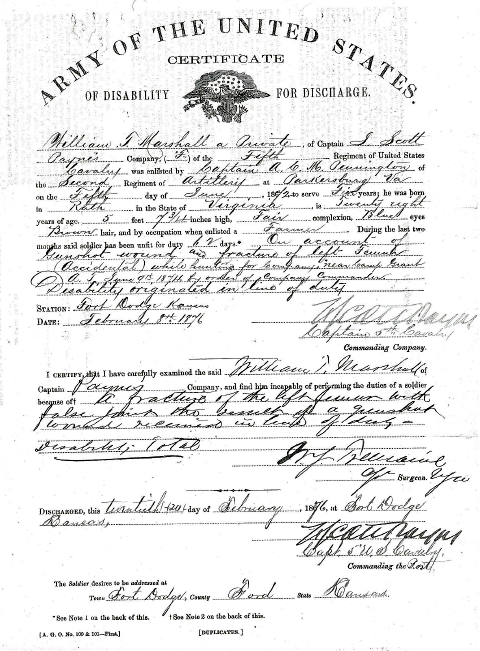 ARMY OF THE UNITED STATES.
CERTIFICATE
OF DISABILITY FOR DISCHARGE.
William T Marshall a Private, of Captain J Scott
Payne's Company, (F) of the Fifth Regiment of United States
Cavalry was enlisted by Captain A. C. M. Pennington of
the Second Regiment of Artillery at Parkersburg Va
on the Fifth day of 1872 to serve Five years; he was born
in in the State of Virginia, is Twenty eight
years of age, 5 feet 7 3/4 inches high, Fair complexion, Blue eyes
Brown hair, and by occupation when enlisted a Farmer During the last two
months said soldier has been unfit for duty 62 days.* On account of
Gunshot wound and fracture of left Femur
(Accidental) while hunting for Company, near Camp Grant
A. T. 1874 by order of Company Commander
Disability originated in line of duty
STATION: Fort Dodge Kansas
DATE: February 8th 1876
Captain 5th Cavalry
Commanding Company.
I CERTIFY, that I have carefully examined the said William T. Marshall of
Captain Payne's Company, and find him incapable of performing the duties of a soldier
because of† A fracture of the left femur with
false joint the result of a gunshot
wound received in line of duty –
Disability, Total
Surgeon.
DISCHARGED, this twentieth (20) day of February, 1876, at Fort Dodge
Kansas,
Capt. 5" U S Cavalry
Commanding the Post.
The Soldier desires to be addressed at
Town Fort Dodge, County Ford State Kansas.
*See Note 1 on the back of this. †See Note 2 on the back of this.
[A. G. O. No. 100 & 101—First.] [DUPLICATES.]